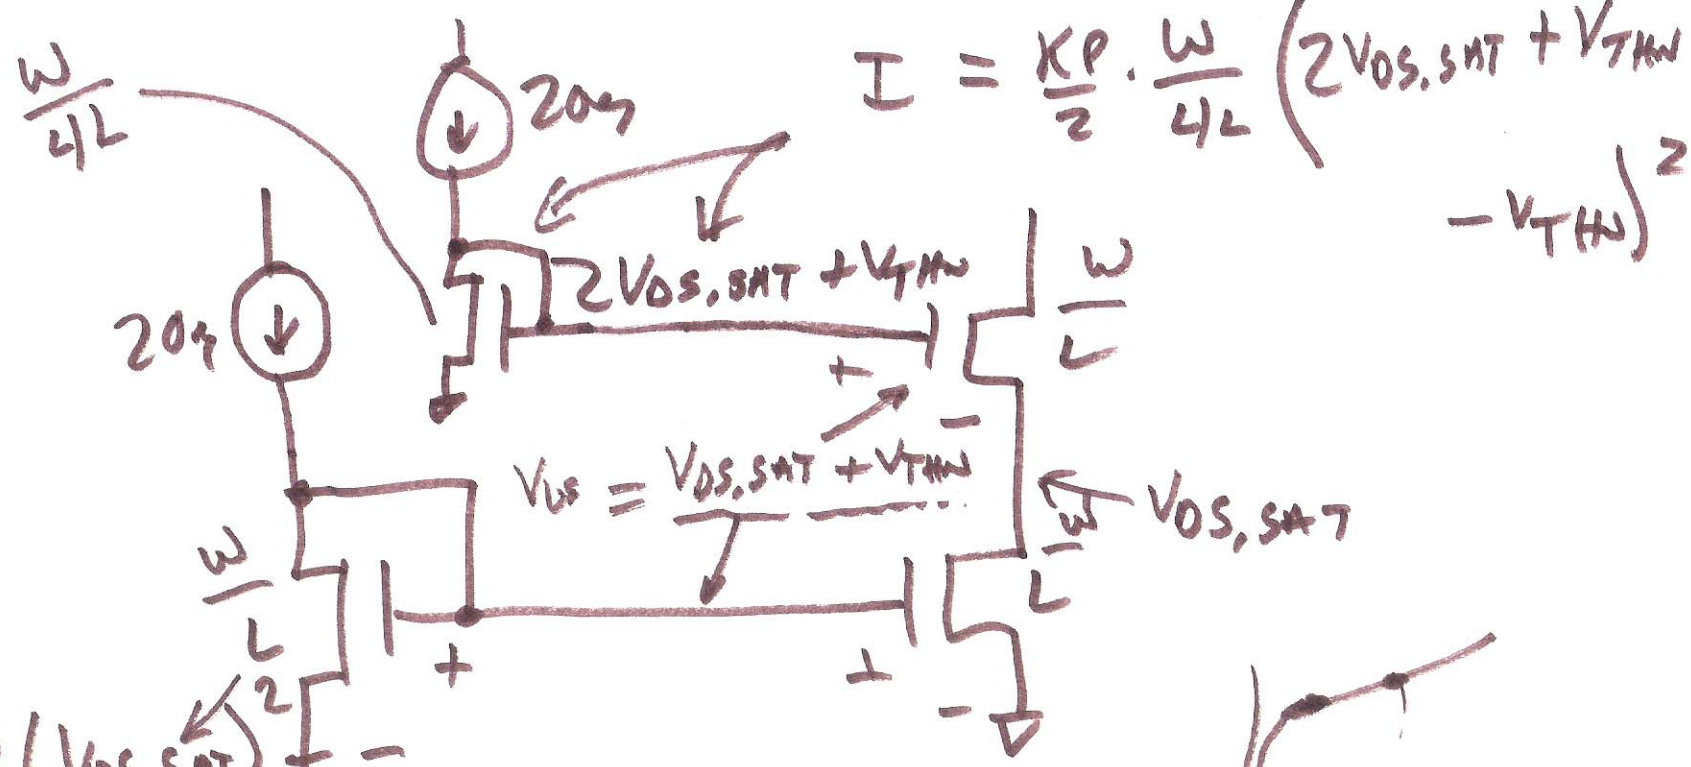 W/4L
20μ
I = KP/2 · W/4L (2VDS,SAT + VTHN
- VTHN)²
2VDS,SAT + VTHN
W/L
20μ
+
-
VGS = VDS,SAT + VTHN
VDS,SAT
W/L
W/L
+
+
-
-
(VDS,SAT)²